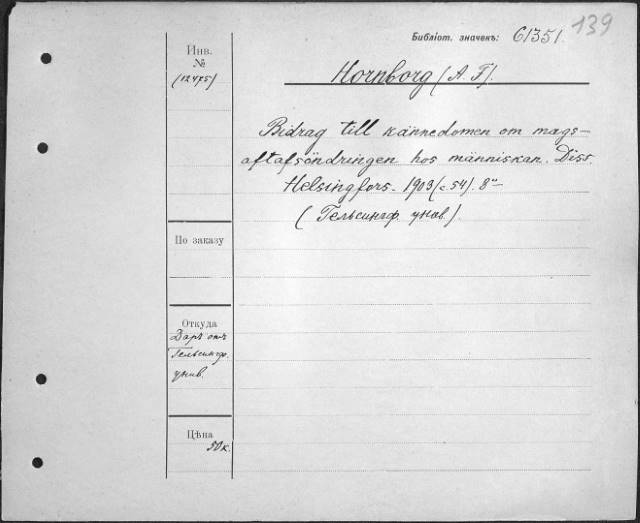 Библіот. значекъ: 61351. 139
Инв.
№
(12475)
Hornborg (A. F.).
Bidrag till kännedomen om mag-
saftafsöndringen hos människan. Diss.
Helsingfors. 1903 (с. 54). 8°
(Гельсингф. унив.).
По заказу
Откуда
Даръ отъ
Гельсингф.
унив.
Цѣна
50 к.